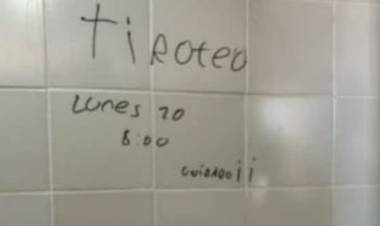 tiRoteo
Lunes 20
8:00
cuidado¡¡